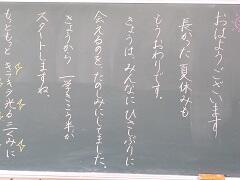 おはようございます
長かった夏休みも
もうおわりです。
きょうはみんなにひさしぶりに
会えるのをたのしみにしてました。
きょうから 二学きこう半が
スタートしますね。
もっともっとキラキラ光る三くみに